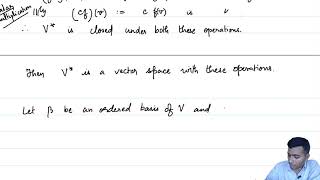 multiplication (cf)(v) := c f(v) is
∴ V* is closed under both these operations.
Then V* is a vector space with these operations.
Let β be an ordered basis of V and